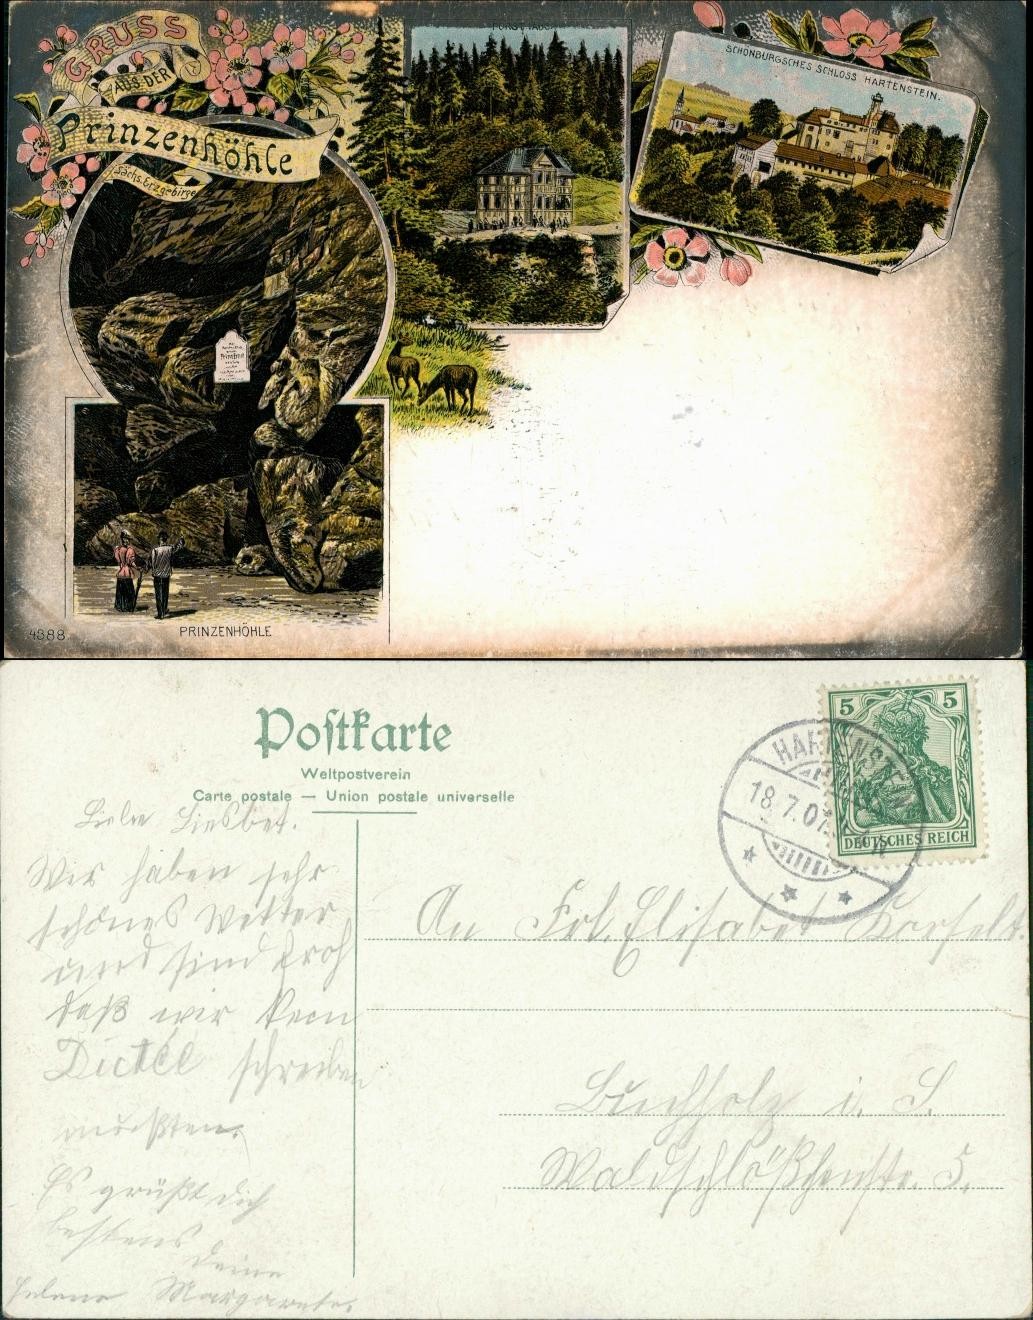 GRUSS
AUS DER
Prinzenhöhle
Sächs. Erzgebirge
SCHÖNBURGSCHES SCHLOSS HARTENSTEIN.
Prinzen
4388.
PRINZENHÖHLE
Postkarte
Weltpostverein
Carte postale — Union postale universelle
5 5
DEUTSCHES REICH
HARTENSTEIN
18.7.07.
Liebe Liesbet.
Wir haben sehr
schönes Wetter
und sind froh
daß wir kein
Dictée schreiben
mußten.
Es grüßt dich
bestens
deine
Helene Margarete.
An Frl. Elisabet Korselt.
Buchholz i. S.
Waldschlößchenstr. 5.